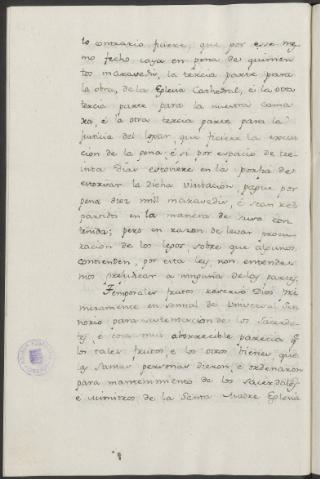 lo contrario ficiere, que por esse mes
mo fecho caya en pena de quinien
tos maravedis, la tercia parte para
la obra, de la Eglesia Cathedral, é la otra
tercia parte para la nuestra cama
ra, é la otra tercia parte para la
justicia del logar, que ficiere la execu
cion de la pena, é si por espacio de tre
inta dias estoviere en la porfia de
estorvar la dicha visitacion, pague por
pena diez mill maravedis, é sean re
partidos en la manera de suso con
tenida; pero en razon de levar procu
racion de los legos sobre que algunos
contienden, por esta ley, non entende
mos prejudicar a ninguna de las partes.
Temporales frutos reservó Dios pri
meramente en señal de Universal Se
ñorio para sustentacion de los Sacerdo
tes, é cosa muy aborrecible parecia q
los tales frutos e los otros bienes, que
las Santas personas dieron, é ordenaron
para mantenimiento de los Sacerdotes
é ministros de la Santa Madre Eglesia